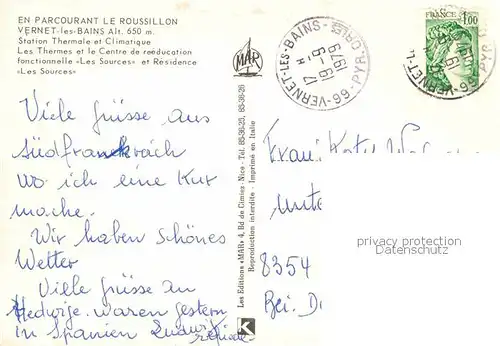 EN PARCOURANT LE ROUSSILLON
VERNET-les-BAINS Alt. 650 m.
Station Thermale et Climatique
Les Thermes et le Centre de reéducation
fonctionnelle «Les Sources» et Résidence
«Les Sources»
Viele grüsse aus
südfrankreich
wo ich eine Kur
mache.
Wir haben schönes
Wetter
Viele grüsse an
Hedwige. waren gestern
in Spanien Ludwig
MAR
Les Editions «MAR» 4, Bd de Cimiez - Nice - Tél. 85-36-25, 85-36-26
Reproduction interdite - Imprimé en Italie
K
VERNET-LES-BAINS
66-PYR.ORLES
17 H
19-9
1979
FRANCE
1,00
Frau Katy
Unte
8354
Bei.
privacy protection
Datenschutz